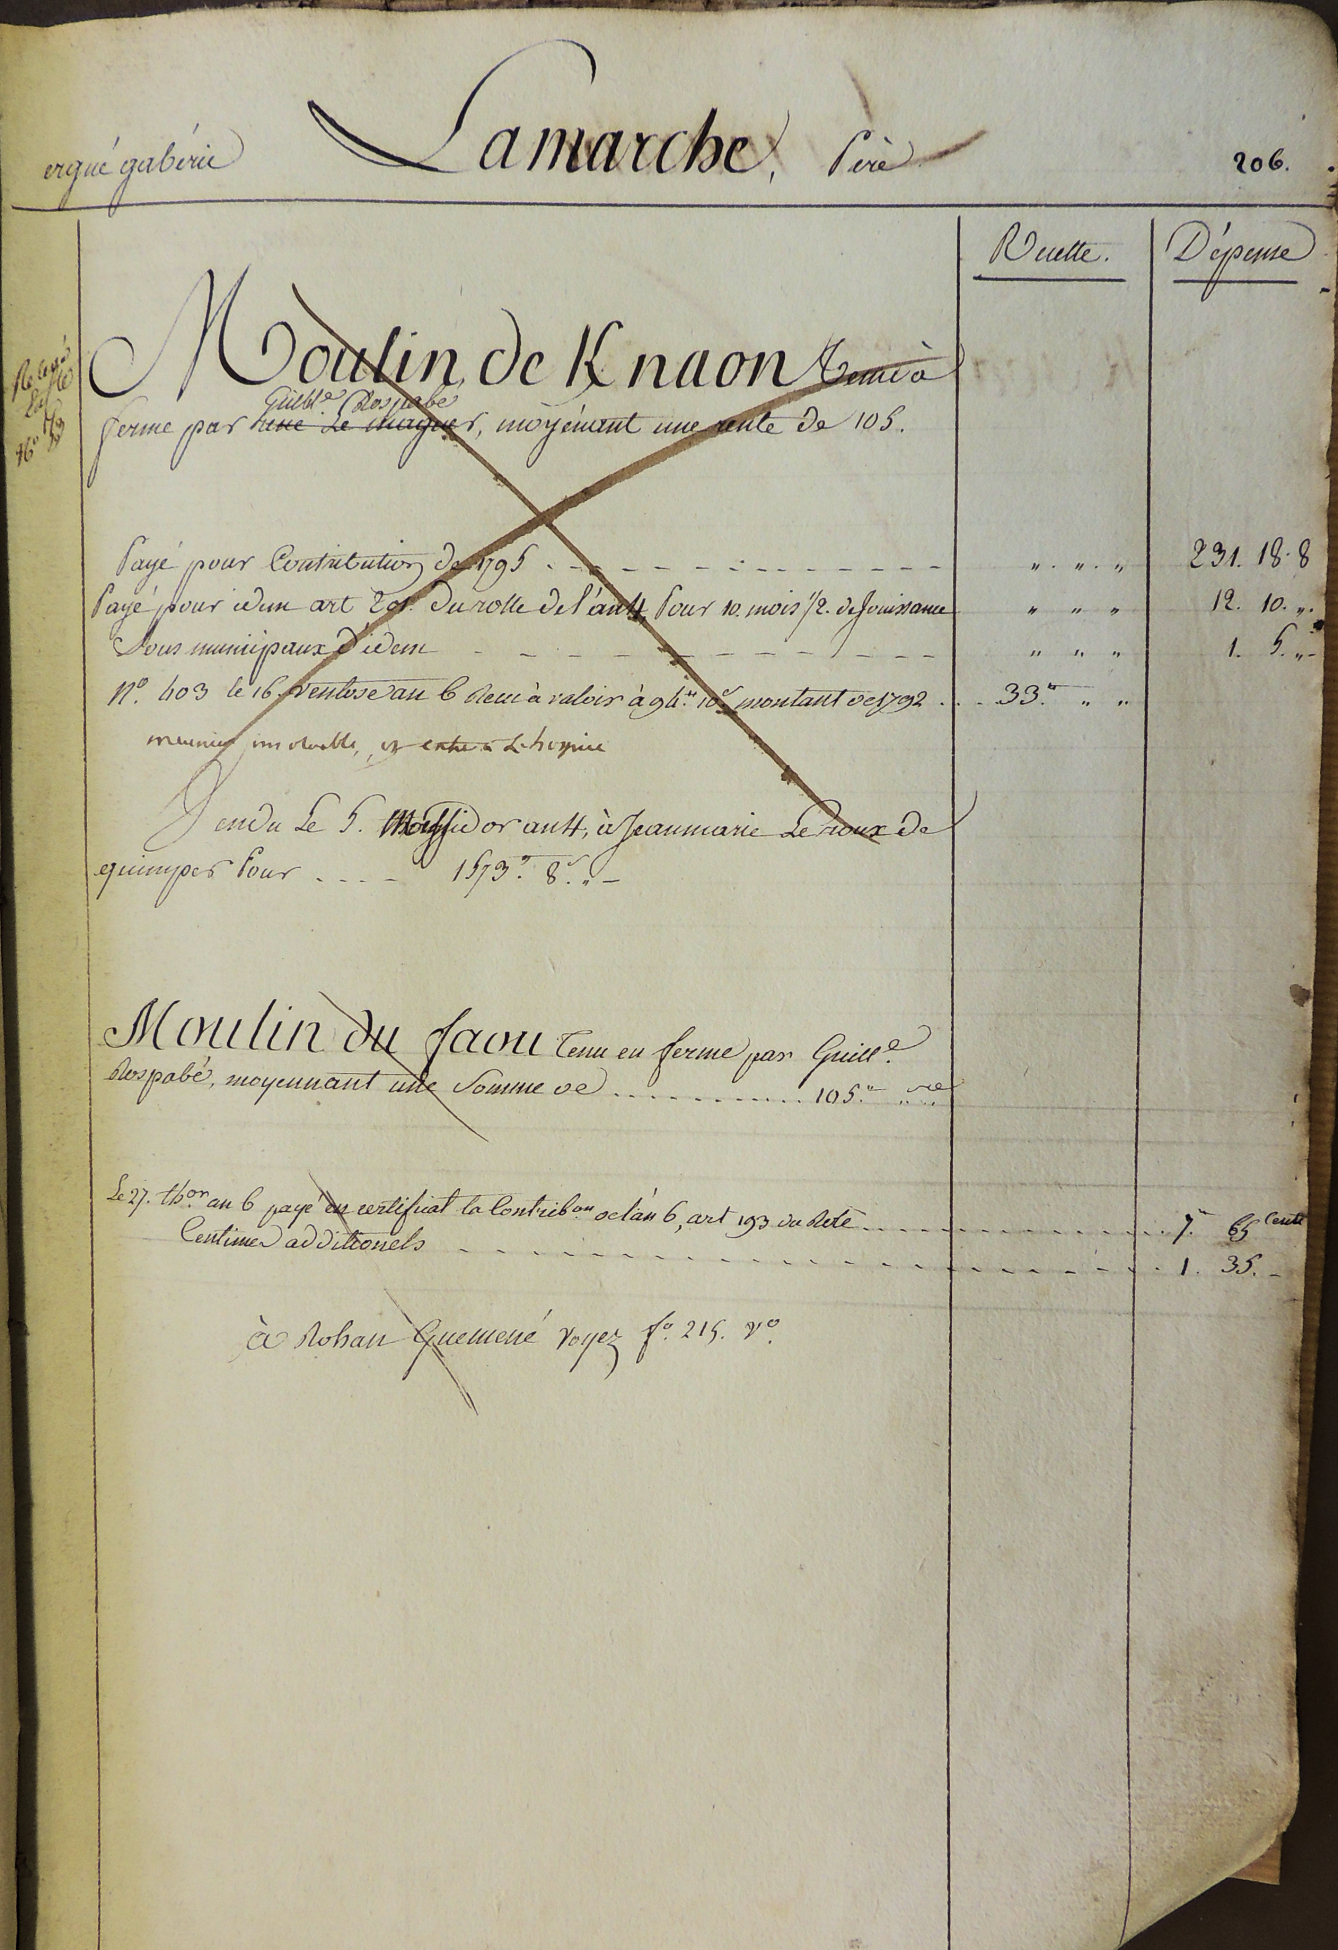 ergué gabéric Lamarche, Père 206.
Recette. Dépense
Moulin de Knaon Tenu à
Guill.e Rospabé
ferme par René Le mager, moyénant une rente de 105.
Payé pour Contribution de 1795 " " " 231. 18. 8
Payé pour idem art 201. du rolle de l'an 4, Pour 10. mois 1/2. de Jouissance " " " 12. 10. "
Sous municipaux d'idem " " " 1. 5. "
N.o 403 le 16. ventose an 6 Recu à valoir à 94.# 10.s montant de 1792 33.# " "
meunier insolvable, à L'hospice
Vendu Le 5. Messidor an 4, à Jean marie Le roux de
quimper Pour 1573.# 8.s "
Moulin du faou Tenu en ferme par Guill.e
Rospabé, moyennant une Somme de 105.#
Le 27. th.or an 6 payé en certificat la Contrib.on de l'an 6, art 193 du Role 7.# 65 Cent
Centimes additionels 1. 35.
à Rohan Guemené voyez f.o 215. v.o